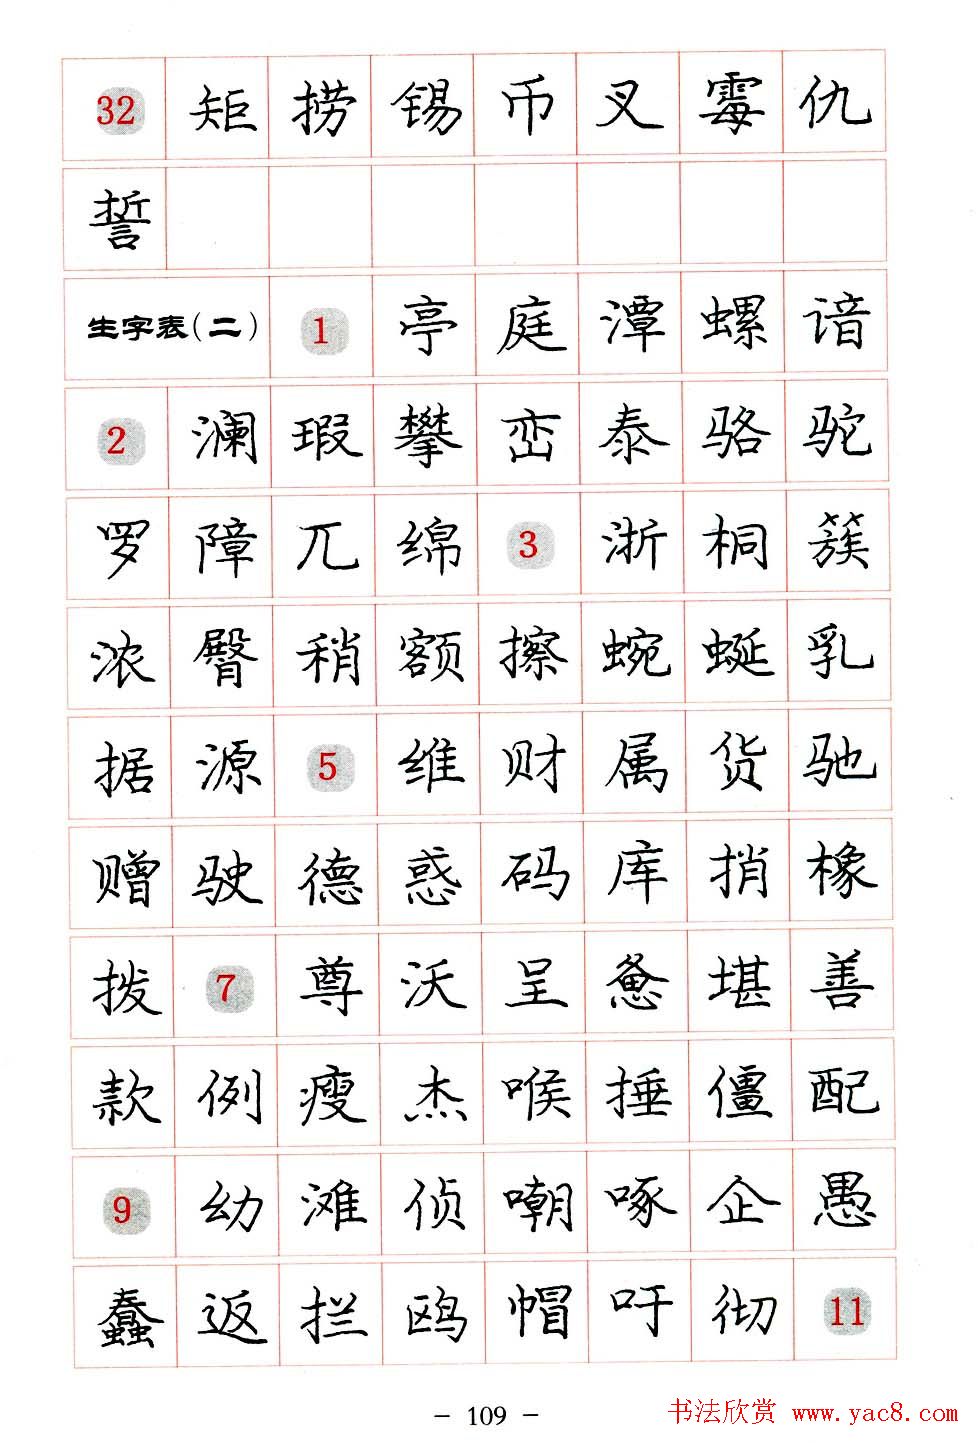 32 矩 捞 锡 币 叉 霉 仇
誓
生字表（二） 1 亭 庭 潭 螺 谙
2 澜 瑕 攀 峦 泰 骆 驼
罗 障 兀 绵 3 浙 桐 簇
浓 臀 稍 额 擦 蜿 蜒 乳
据 源 5 维 财 属 货 驰
赠 驶 德 惑 码 库 捎 橡
拨 7 尊 沃 呈 惫 堪 善
款 例 瘦 杰 喉 捶 僵 配
9 幼 滩 侦 嘲 啄 企 愚
蠢 返 拦 鸥 帽 吁 彻 11
- 109 -
书法欣赏 www.yac8.com